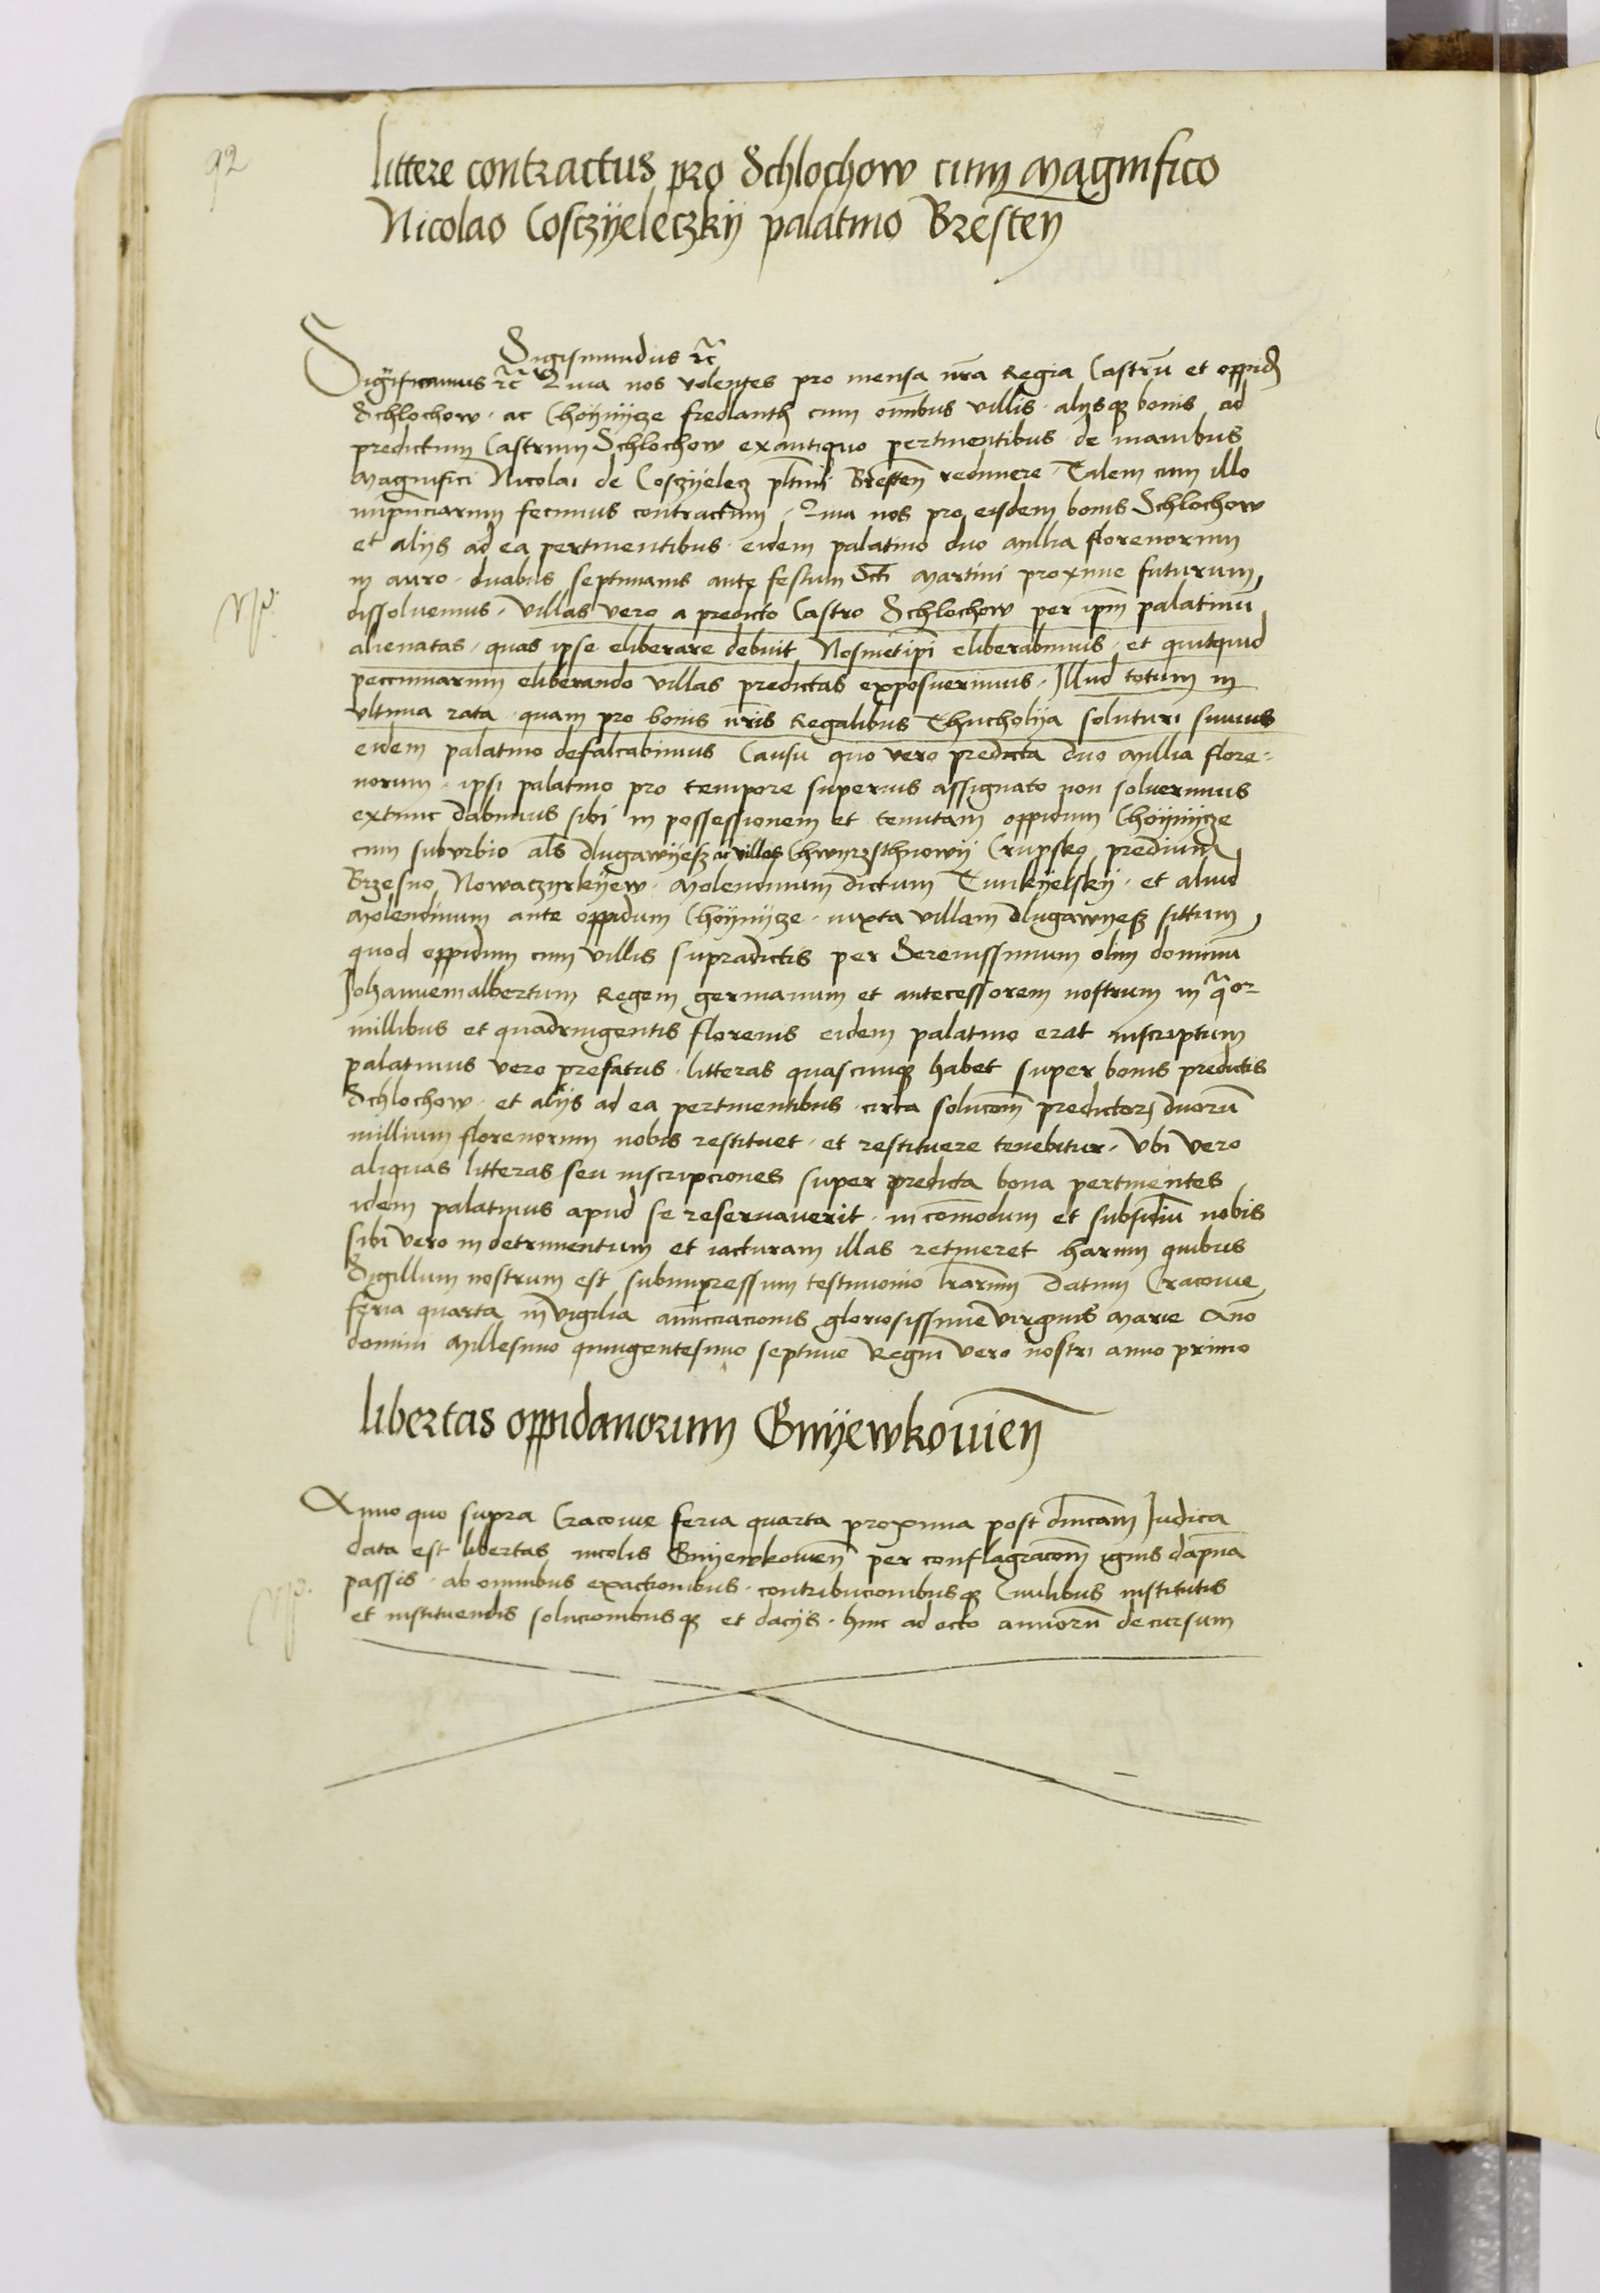 92
littere contractus pro Schlochow cum Magnifico
Nicolao Cosczÿeleczkÿ palatino Bresten
Sigismundus etc
Significamus etc Quia nos volentes pro mensa nr̄a Regia Castrū et oppid
Schlochow ac Choÿnÿcze fredlanth cum om̄ibus villis alijsq bonis ad
predictum Castrum Schlochow exantiquo pertinentibus de manibus
Magnifici Nicolai de Cosczÿelecz pltini Bresten̄ redimere Talem cum illo
nupnciarum fecimus contractum Quia nos pro eisdem bonis Schlochow
et alijs ad ea pertinentibus eidem palatino duo millia florenorum
in auro duabus septimanis ante festum Scti Martini proxime futurum
dissoluemus villas vero a predicto Castro Schlochow per ip̄m palatinū
alienatas quas ipse eliberare debuit Nosmetip̄i eliberabimus et quitquid
peccuniarum eliberando villas predictas exposuerimus Illud totum in
vltima rata quam pro bonis nr̄is Regalibus Thucholÿa soluturi sumus
eidem palatino defalcabimus Casu quo vero predicta duo millia flore-
norum ipsi palatino pro tempore superius assignato non soluerimus
extunc dabimus sibi in possessionem et tenutam oppidum Choÿnÿcze
cum suburbio al̄s dlugawÿesz ac villas Chwÿrzsthnowÿ Crupsko predium
Brzesno Nowaczyrkÿew Molendinum dictum Tunkÿelskÿ et aliud
Molendinum ante oppidum Choÿnÿcze iuxta villam dlugawyesz sittum
quod oppidum cum villis supradictis per Serenissimum olim dominū
Johannemalbertum Regem germanum et antecessorem nostrum in qͣor
millibus et quadringentis florenis eidem palatino erat inscriptum
palatinus vero prefatus litteras quascunq habet super bonis predictis
Schlochow et alijs ad ea pertinentibus circa solucōm predictorz duorū
millium florenorum nobis restituet et restituere tenebitur Vbi vero
aliquas litteras seu inscripciones super predicta bona pertinentes
idem palatinus apud se reseruauerit in com̄odum et subsidiū nobis
sibi vero in detrimentum et iacturam illas retineret harum quibus
Sigillum nostrum est subimpressum testimonio lrarum̄ Datum Cracouie
feria quarta in vigilia annūcciacionis gloriosissime virginis Marie An̄o
domini Millesimo quingentesimo septimo Regni vero nostri anno primo
libertas oppidanorum Gnÿewkouien
Anno quo supra Cracouie feria quarta proxima post dn̄icam Judica
data est libertas incolis Gnÿewkouien̄ per conflagracōm ignis dapna
passis ab omnibus exactionibus contribucionibusq Ciuilibus institutis
et instituendis solucionibusq et dacijs hinc ad octo annorū decursum